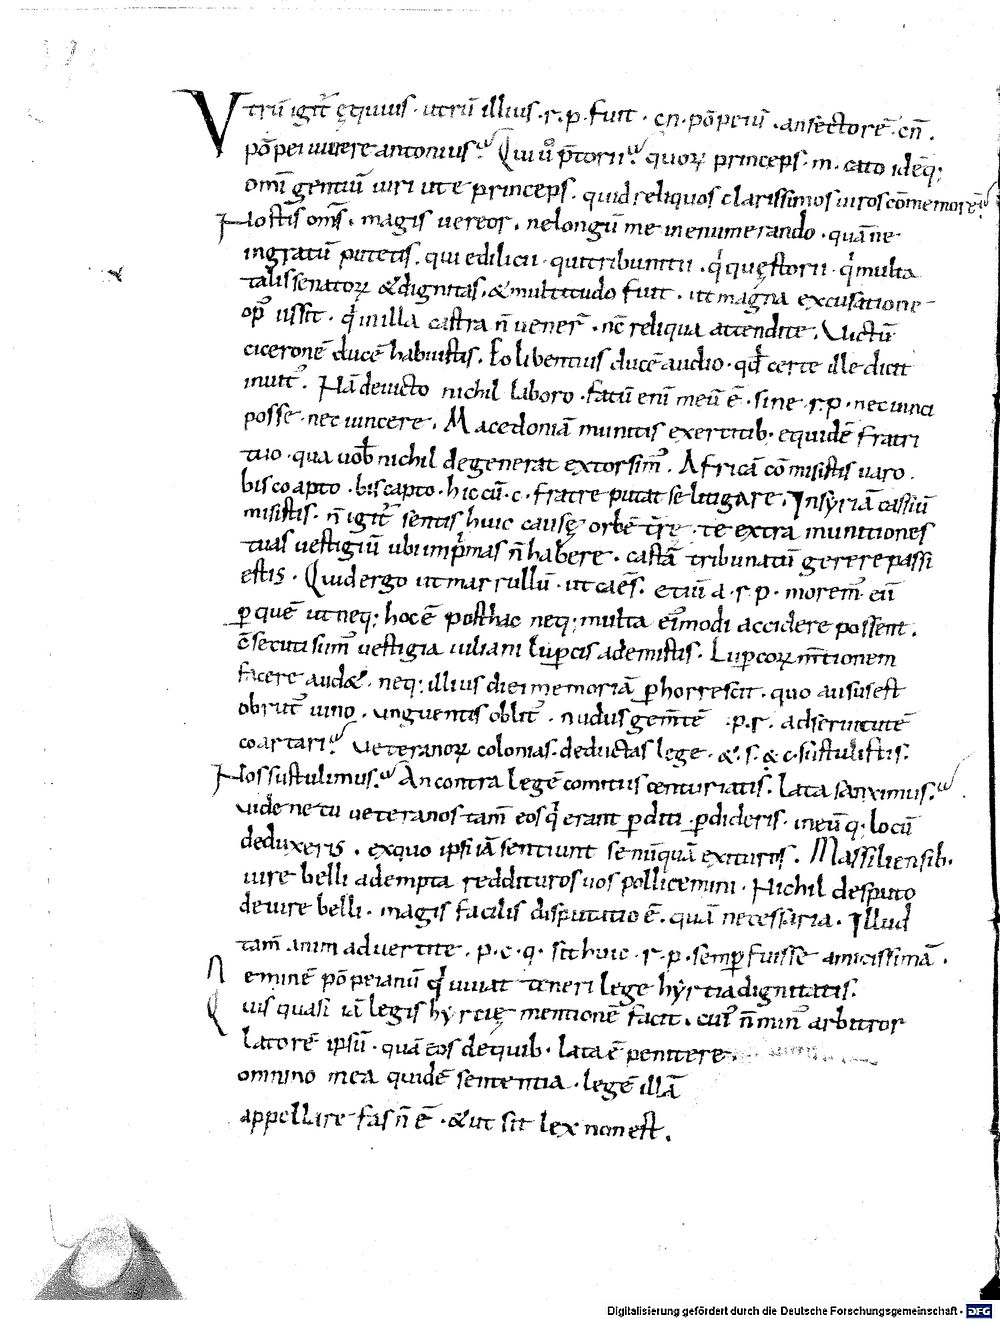 Vtrū igit̄ ęquius · utrū illius · r · p · fuit · cn · pōpeiū · an sectorē · cn̄ ·
pōpei uiuere antonius? Qui ū p̄torii? quoꝝ princeps · m · cato ideq;
omi gentiū uiri ute princeps · quid reliquos clarissimos uiros cōmemorē?
Nostis om̄s · magis uereor · ne longū me in enumerando · quā ne
ingratū putetis · qui edilicii · qui tribunitii · q̄ quęstorii · q̄ multa
talis senatoꝝ & dignitas · & multitudo fuit · ut magna excusatione
op' iussit · q̄ in illa castra n̄ uener̄ · nc̄ reliqua attendite · Victū
ciceronē ducē habuistis · Eo libentius ducē audio · qd̄ certe ille dicit
inuit' · Nā de uicto nichil laboro · fatū eni meū ē · sine · r · p · nec uinci
posse · nec uincere · Macedoniā munitis exercitib · equidē fratri
tuo · qua uob̄ nichil degenerat extorsim' · Africā cōmisistis uaro ·
bis coapto · bis capto · hic cū · c · fratre putat se litigare · In syriā cassiū
misistis · n̄ igit̄ sentis huic causę orbē t̄rę · te extra munitiones
tuas uestigiū ubi imp̄mas n̄ habere · castā tribunatū gerere passi
estis · Quid ergo ut marrullū · ut caēs · etiū a · r · p · morem' eū
ꝑ quē ut neq; hoc ē posthac neq; multa ei'modi accidere possent ·
c̄secuti sum' uestigia iuliani luꝑcis ademistis · Luꝑcoꝝ m̄tionem
facere aud& · neq; illius diei memoriā ꝑhorrescit · quo ausus est
obrut' uino · unguentis oblit' · nudus gem̄tē · p · r · ad seruitutē
coartari? Veteranoꝝ colonias · deductas lege · & · s · & c · sustulistis ·
Nos sustulimus? An contra legē comitiis centuriatis · Lata sanximus?
Vide ne tu ueteranos tam̄ eos q̄ erant ꝑditi ꝑdideris · in eū q; locū
deduxeris · ex quo ipsi iā sentiunt se nūquā exituros · Massiliensib ·
iure belli adempta reddituros uos pollicemini · Nichil desputo
de iure belli · magis facilis disputatio ē · quā necessaria · Illud
tam̄ animaduertite · p · c · q · sit huic · r · p · semꝑ fuisse amicissimā ·
Neminē pōpeianū q̄ uiuat teneri lege hyrtia dignitatis ·
Quis quasi iā legis hyrcię mentionē facit · cui' n̄ min' arbitror
latorē ipsū · quā eos de quib · lata ē penitere ·
omnino mea quidē sententia · legē illā
appellare fas n̄ ē · & ut sit lex non est ·
Digitalisierung gefördert durch die Deutsche Forschungsgemeinschaft - DFG